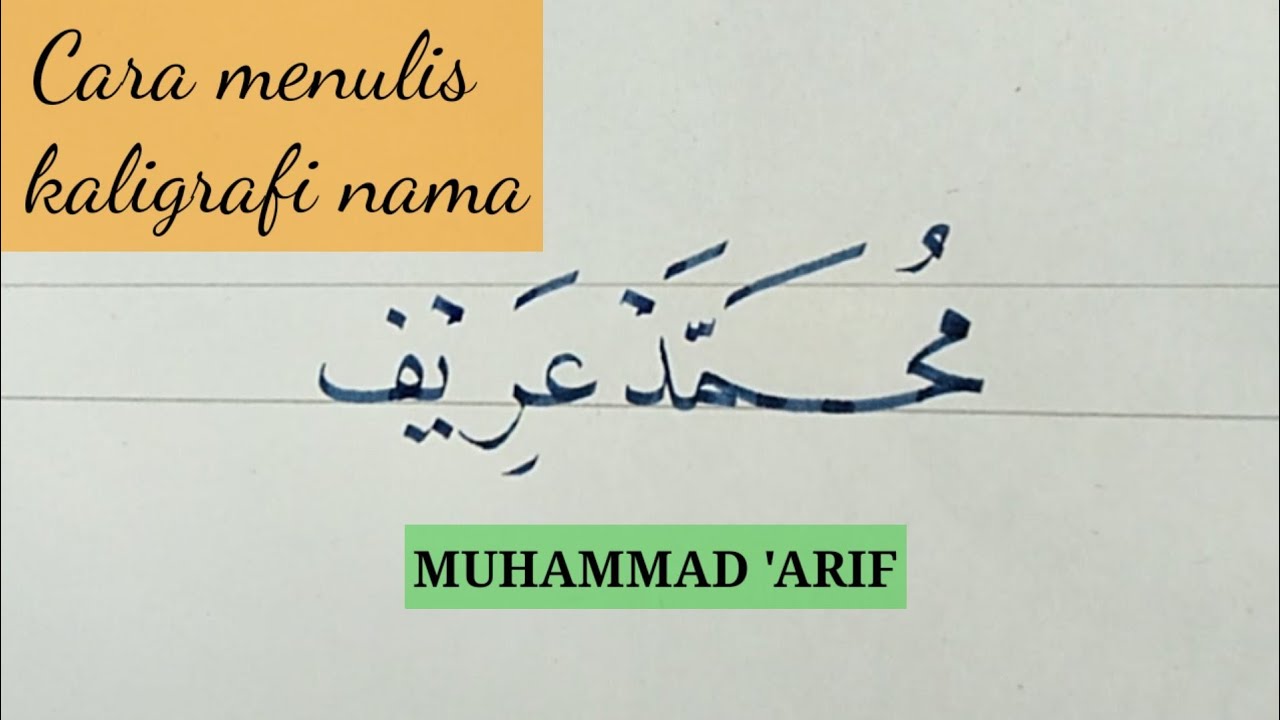 Cara menulis
kaligrafi nama
مُحَمَّدْ عَرِيْف
MUHAMMAD 'ARIF